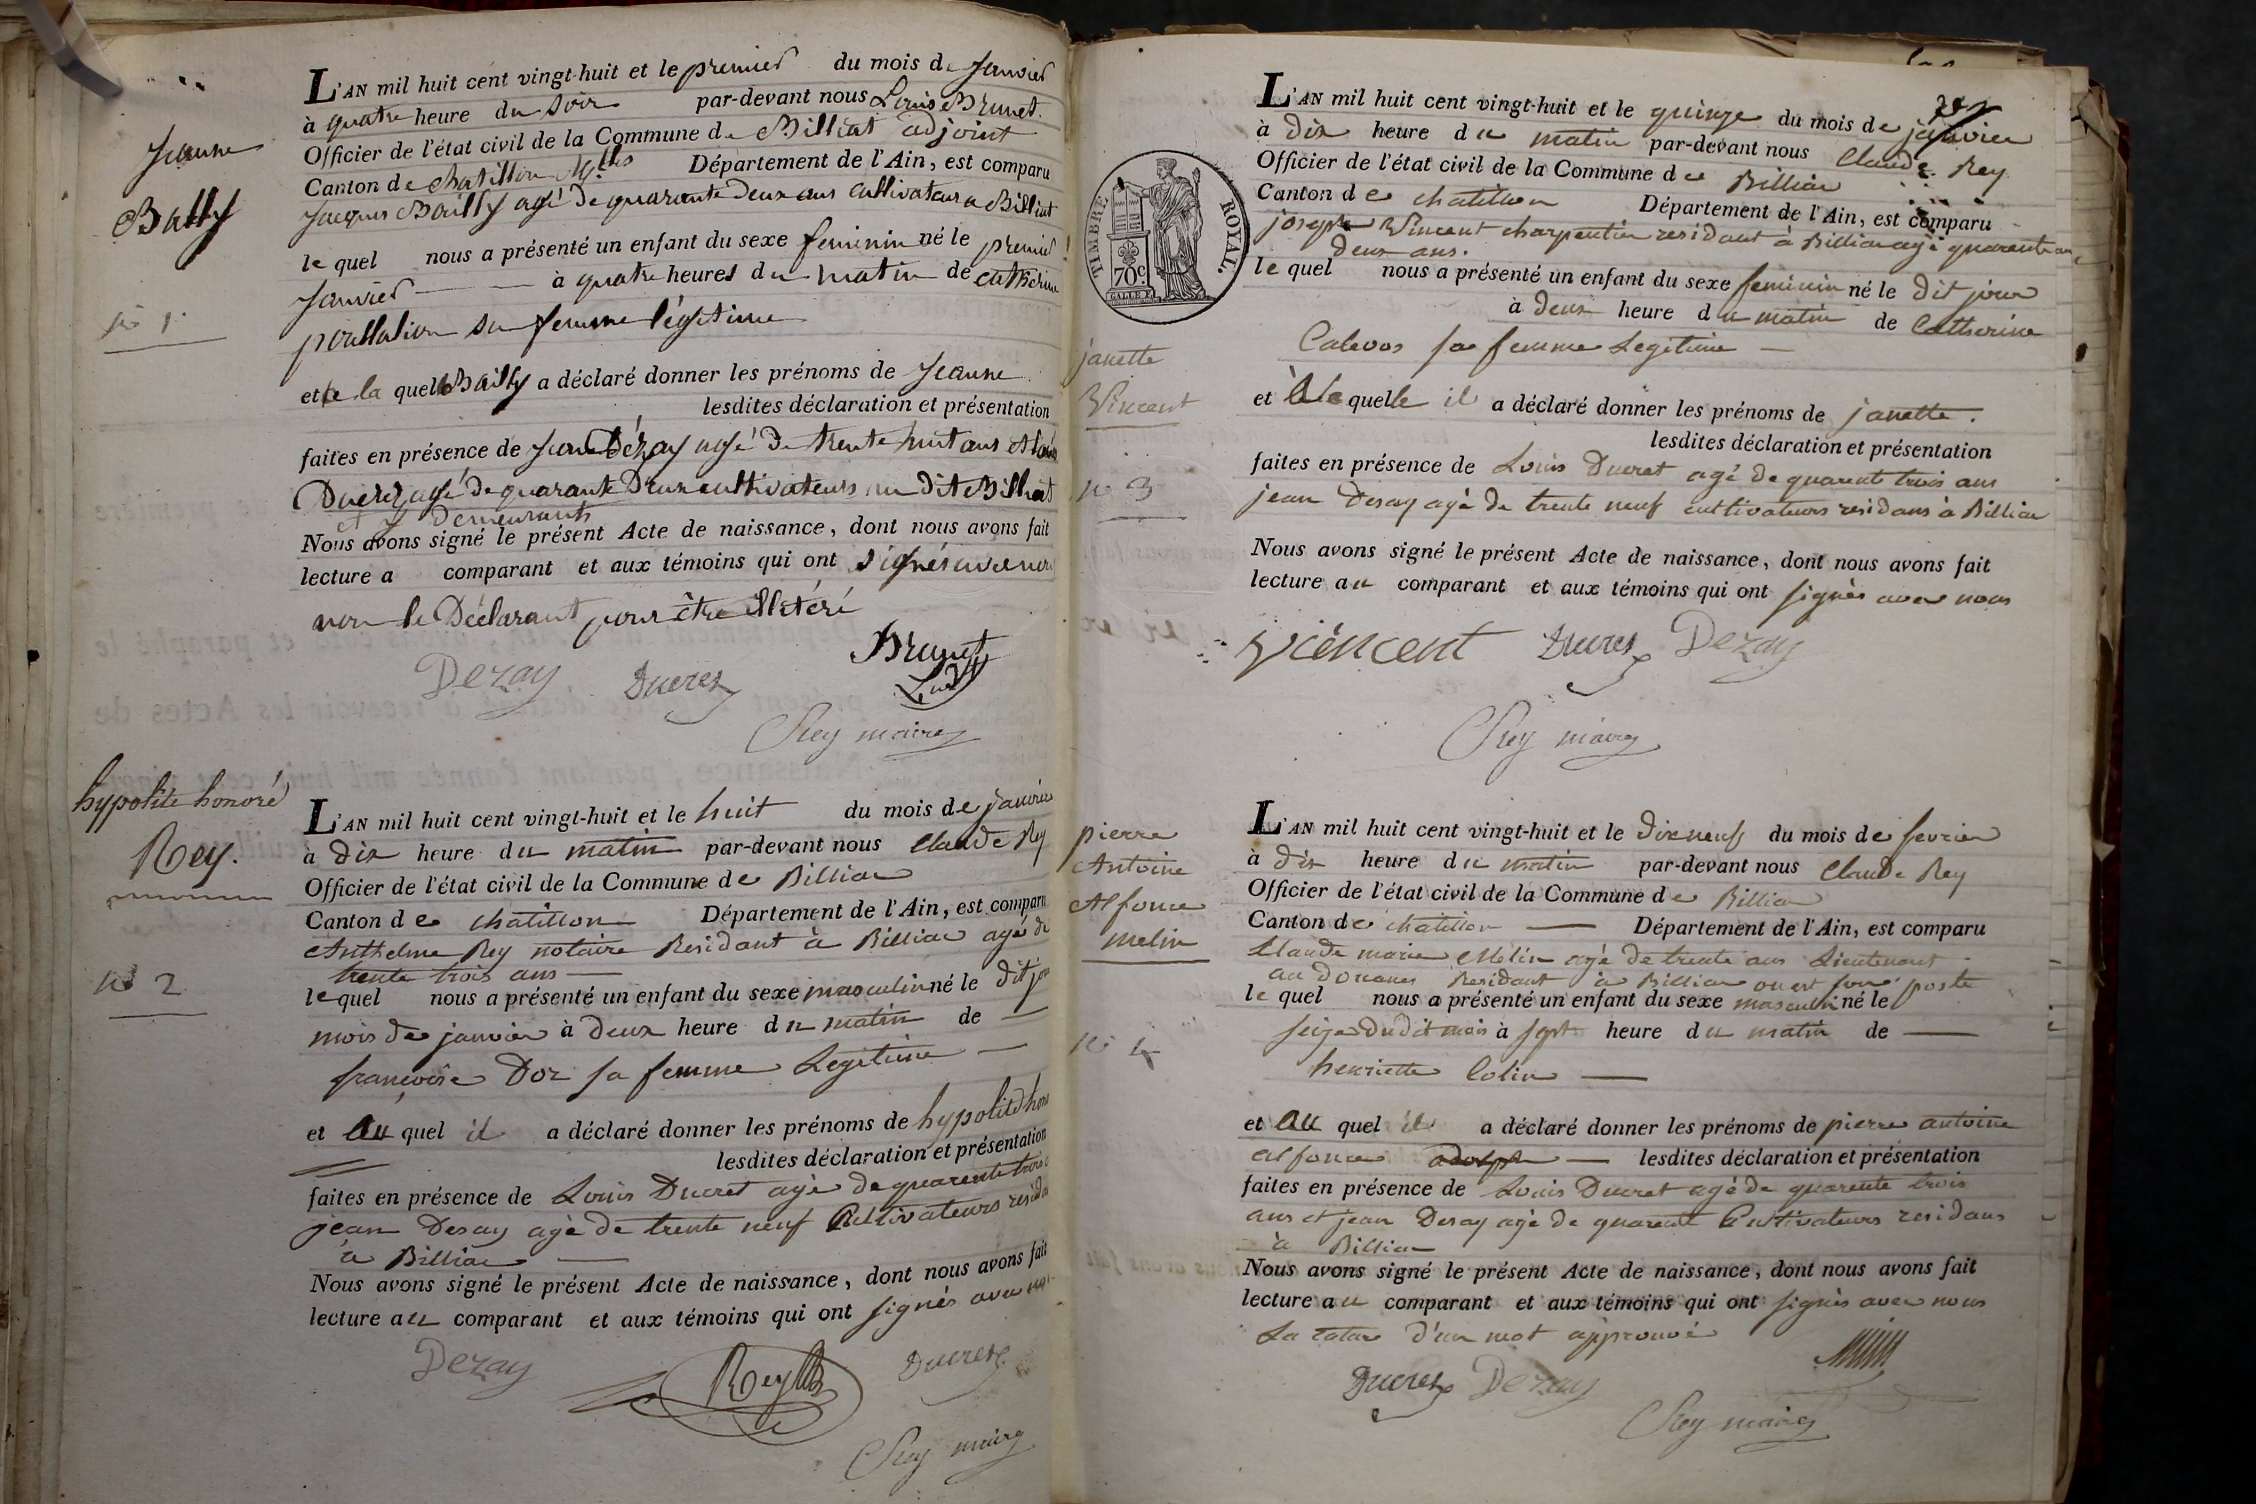 Jeanne
Bailly
n° 1
L'AN mil huit cent vingt-huit et le premier du mois de Janvier
à quatre heure du soir par-devant nous Louis Brunet
Officier de l'état civil de la Commune de Billiat adjoint
Canton de chatillon Département de l'Ain, est comparu
Jacques Bailly agé de quarante deux ans cultivateur a Billiat
le quel nous a présenté un enfant du sexe feminin né le premier
Janvier à quatre heures du matin de catherine
sa femme légitime
et la quelle Bailly a déclaré donner les prénoms de Jeanne
lesdites déclaration et présentation
faites en présence de Jean Dézay agé de trente huit ans et Louis
Ducrez agé de quarante Deux cultivateurs au dit Billiat
et y Demeurants
Nous avons signé le présent Acte de naissance, dont nous avons fait
lecture a comparant et aux témoins qui ont signés avec nous
non le Déclarant pour être illétéré
Brunet
Dezay Ducrez
Rey maire
hypolite honoré
Rey.
n° 2
L'AN mil huit cent vingt-huit et le huit du mois de janvier
à dix heure du matin par-devant nous Claude Rey
Officier de l'état civil de la Commune de Billiac
Canton de chatillon Département de l'Ain, est comparu
Anthelme Rey notaire Residant à Billiac agé de
trente trois ans
le quel nous a présenté un enfant du sexe masculin né le dit jour
mois de janvier à deux heure du matin de
françoise Doz sa femme Legitime
et Au quel il a déclaré donner les prénoms de hypolite hono
lesdites déclaration et présentation
faites en présence de Louis Ducret agé de quarente trois
jean Desay agé de trente neuf Cultivateurs resida
à Billiac
Nous avons signé le présent Acte de naissance, dont nous avons fait
lecture au comparant et aux témoins qui ont signés avec nous
Dezay Rey Ducrez
Rey maire
TIMBRE ROYAL.
70c.
janette
Vincent
n° 3
L'AN mil huit cent vingt-huit et le quinze du mois de janvier
à dix heure du matin par-devant nous Claude Rey
Officier de l'état civil de la Commune de Billiac
Canton de chatillon Département de l'Ain, est comparu
joseph Vincent charpentier residant à Billiac agé quarente
deux ans.
le quel nous a présenté un enfant du sexe feminin né le dit jour
à deux heure du matin de Catherine
Calevos sa femme Legitime
et à la quelle il a déclaré donner les prénoms de janette.
lesdites déclaration et présentation
faites en présence de Louis Ducret agé de quarente trois ans
jean Desay agé de trente neuf cultivateurs residans à Billiac
Nous avons signé le présent Acte de naissance, dont nous avons fait
lecture au comparant et aux témoins qui ont signés avec nous
Viencent Ducrez Dezay
Rey maire
pierre
Antoine
Alfonce
melin
n° 4
L'AN mil huit cent vingt-huit et le dix neuf du mois de fevrier
à dix heure du matin par-devant nous Claude Rey
Officier de l'état civil de la Commune de Billiac
Canton de chatillon Département de l'Ain, est comparu
Claude marie Mélin agé de trente ans Lieutenant
au Douanes Residant à Billiac ou est son poste
le quel nous a présenté un enfant du sexe masculin né le
seize dudit mois à sept heure du matin de
henriette Colin
et Au quel il a déclaré donner les prénoms de pierre antoine
alfonce adolph lesdites déclaration et présentation
faites en présence de Louis Ducret agé de quarente trois
ans et jean Desay agé de quarente Cultivateurs residans
à Billiac
Nous avons signé le présent Acte de naissance, dont nous avons fait
lecture au comparant et aux témoins qui ont signés avec nous
La rature d'un mot approuvé
Ducrez Dezay
Rey maire